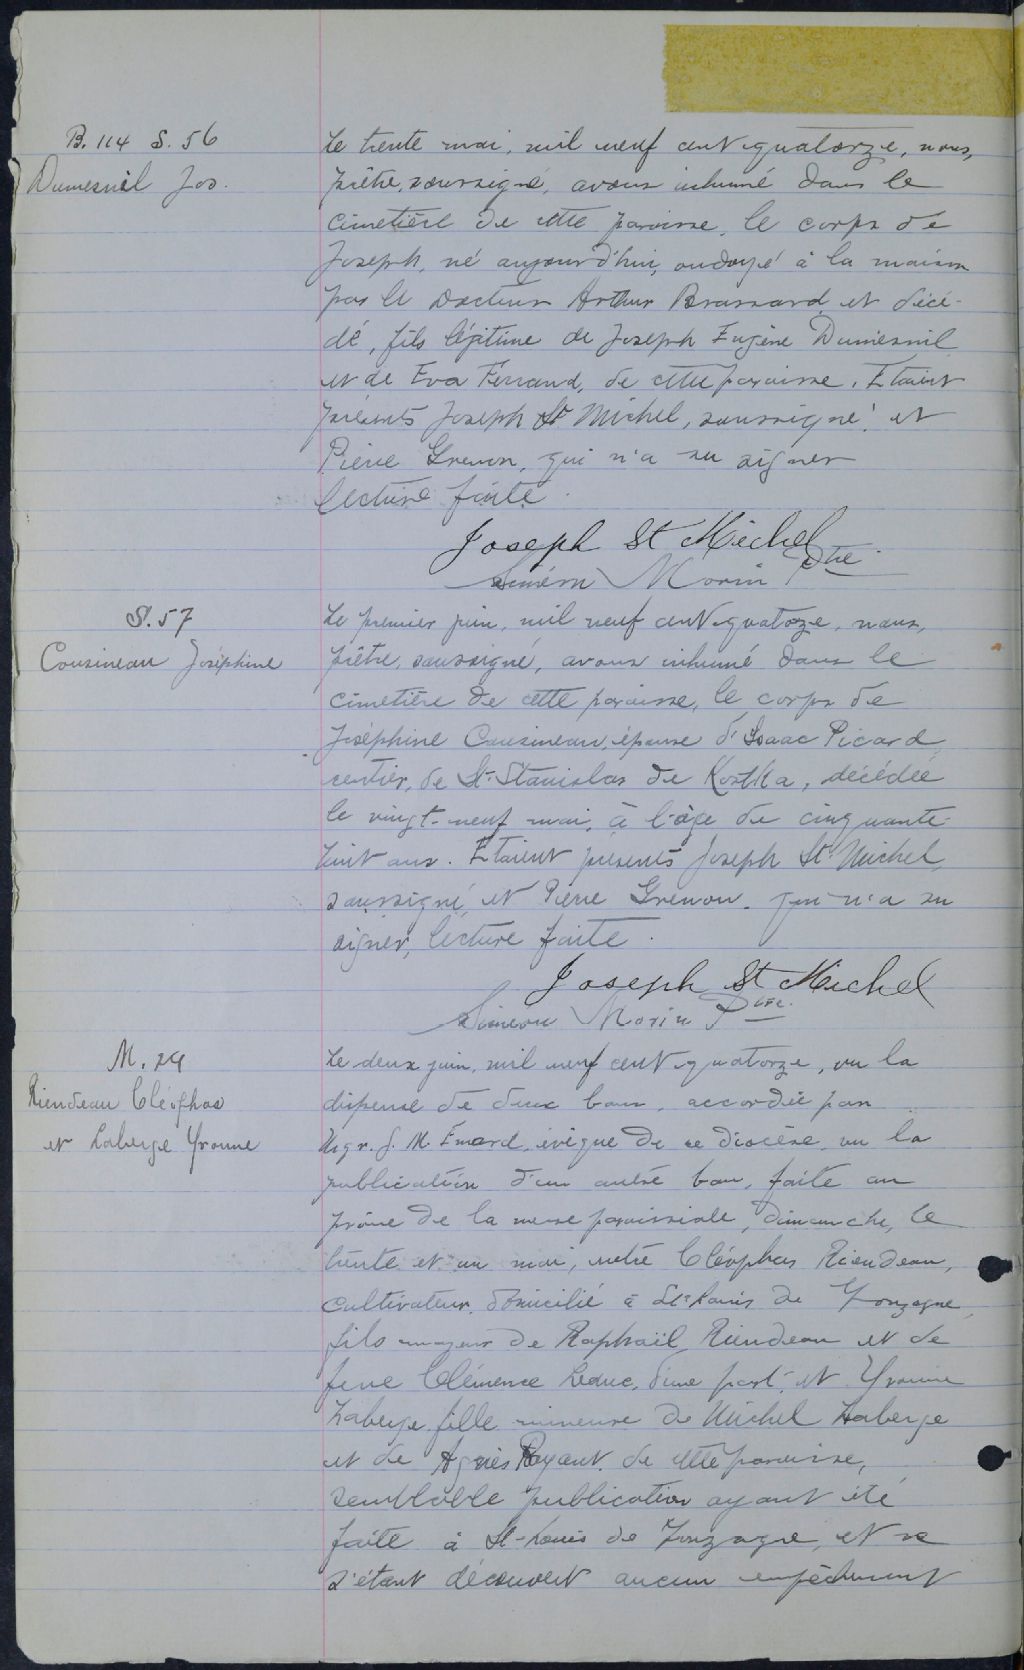 B. 114 S. 56
Dumesnil Jos.
Le trente mai, mil neuf cent quatorze, nous,
prêtre, soussigné, avons inhumé dans le
cimetière de cette paroisse, le corps de
Joseph, né aujourd'hui, ondoyé à la maison
par le Docteur Arthur Brassard et décé-
dé, fils légitime de Joseph Eugène Dumesnil
et de Eva Ferrand, de cette paroisse. Etaient
présents Joseph St Michel, soussigné et
Pierre Grenon, qui n'a su signer
lecture faite.
Joseph St Michel
Siméon Morin Ptre
S. 57
Cousineau Joséphine
Le premier juin, mil neuf cent quatorze, nous,
prêtre, soussigné, avons inhumé dans le
cimetière de cette paroisse, le corps de
Joséphine Cousineau, épouse d'Isaac Picard,
rentier, de St-Stanislas de Kostka, décédée
le vingt-neuf mai, à l'âge de cinquante-
huit ans. Etaient présents Joseph St Michel,
soussigné et Pierre Grenon, qui n'a su
signer, lecture faite.
Joseph St Michel
Siméon Morin Ptre.
M. 24
Riendeau Cléophas
et Laberge Yvonne
Le deux juin, mil neuf cent quatorze, vu la
dispense de deux bans, accordée par
Mgr. J. M. Emard, évêque de ce diocèse, vu la
publication d'un autre ban, faite au
prône de la messe paroissiale, dimanche, le
trente et un mai, entre Cléophas Riendeau,
cultivateur, domicilié à St-Louis de Gonzague,
fils majeur de Raphaël Riendeau et de
feue Clémence Leduc, d'une part; et Yvonne
Laberge, fille mineure de Michel Laberge
et de Agnès Payant, de cette paroisse,
semblable publication ayant été
faite à St-Louis de Gonzague, et ne
s'étant découvert aucun empêchement